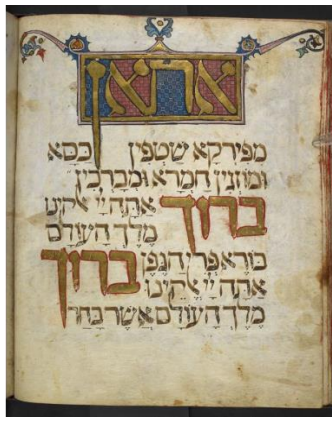 אתאן
מפירקא שטפין כסא
ומוזגין חמרא ומברכין
ברוך אתה יי אלהינו
מלך העולם
בורא פרי הגפן ברוך
אתה יי אלהינו
מלך העולם אשר בחר